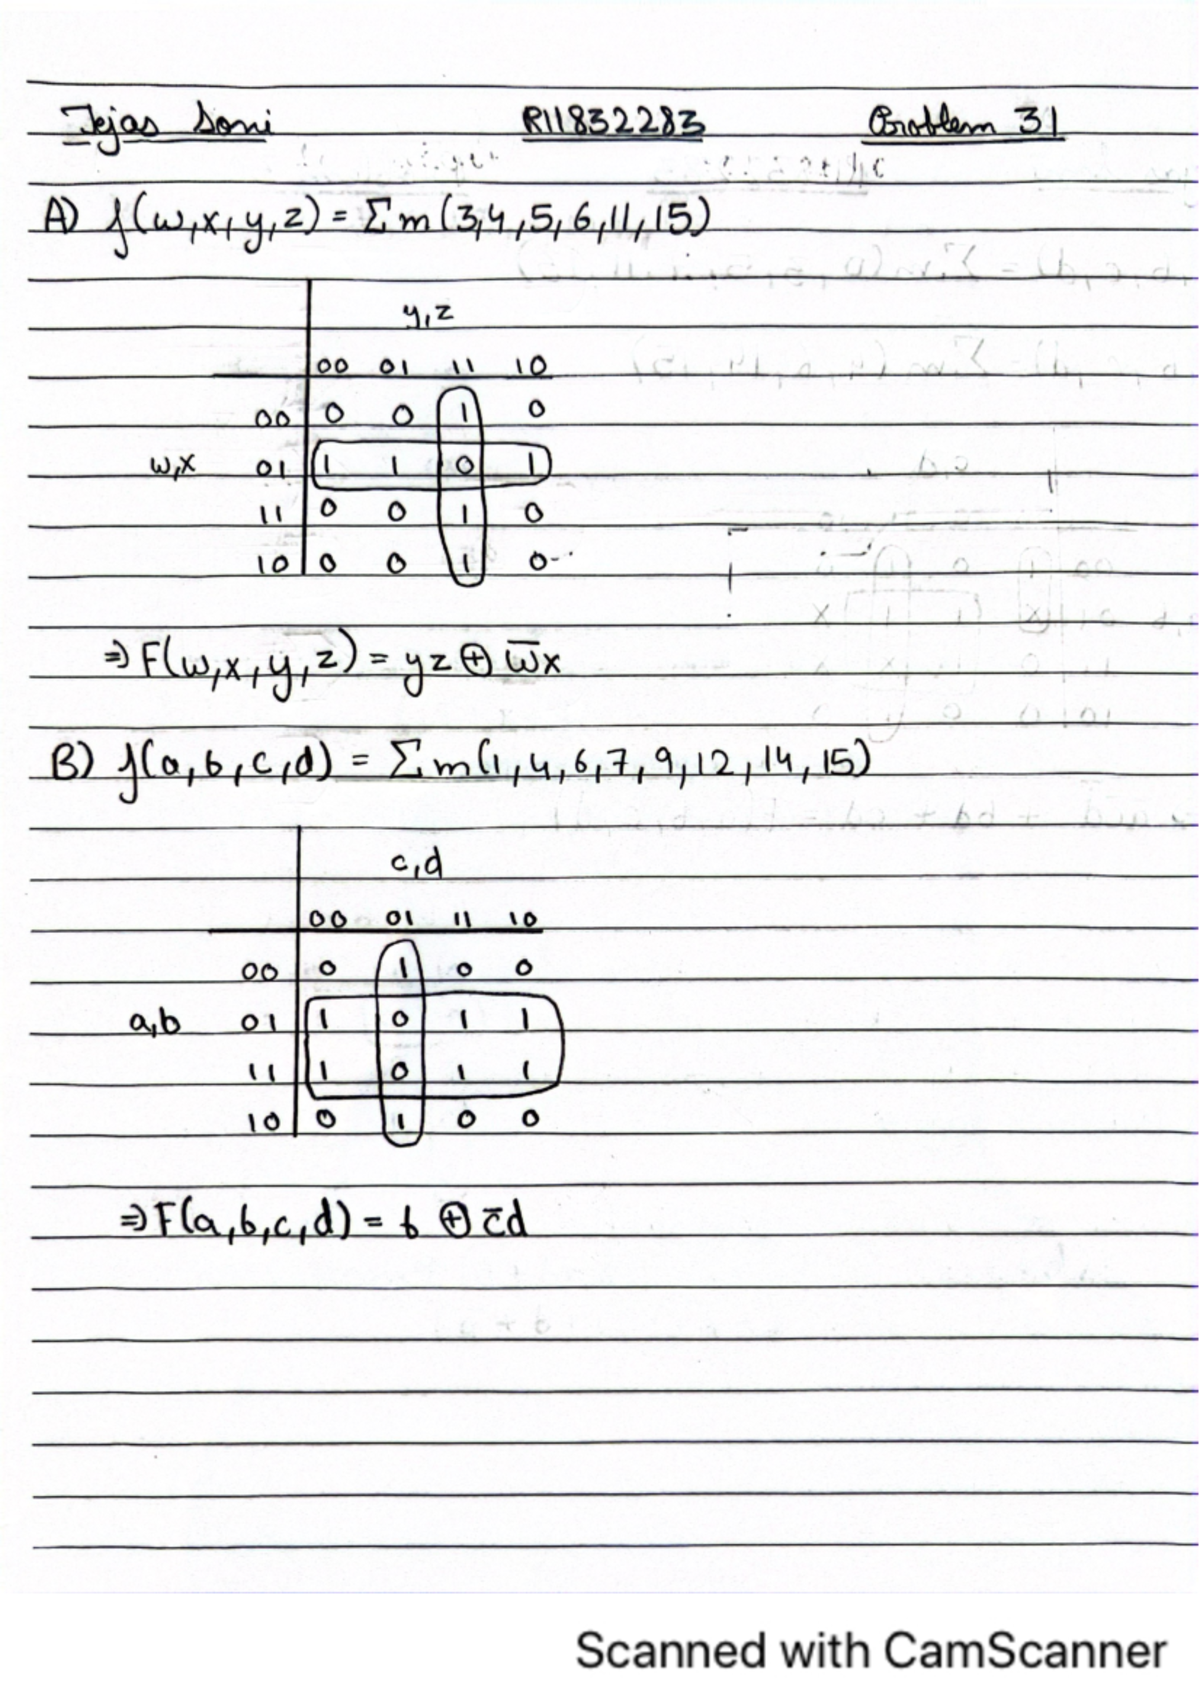 Tejas Soni R11832283 Problem 31
A) f(w,x,y,z) = Σm(3,4,5,6,11,15)
y,z
00 01 11 10
00 0 0 1 0
w,x 01 1 1 0 1
11 0 0 1 0
10 0 0 1 0
⇒ F(w,x,y,z) = yz ⊕ w̅x
B) f(a,b,c,d) = Σm(1,4,6,7,9,12,14,15)
c,d
00 01 11 10
00 0 1 0 0
a,b 01 1 0 1 1
11 1 0 1 1
10 0 1 0 0
⇒ F(a,b,c,d) = b ⊕ c̅d
Scanned with CamScanner